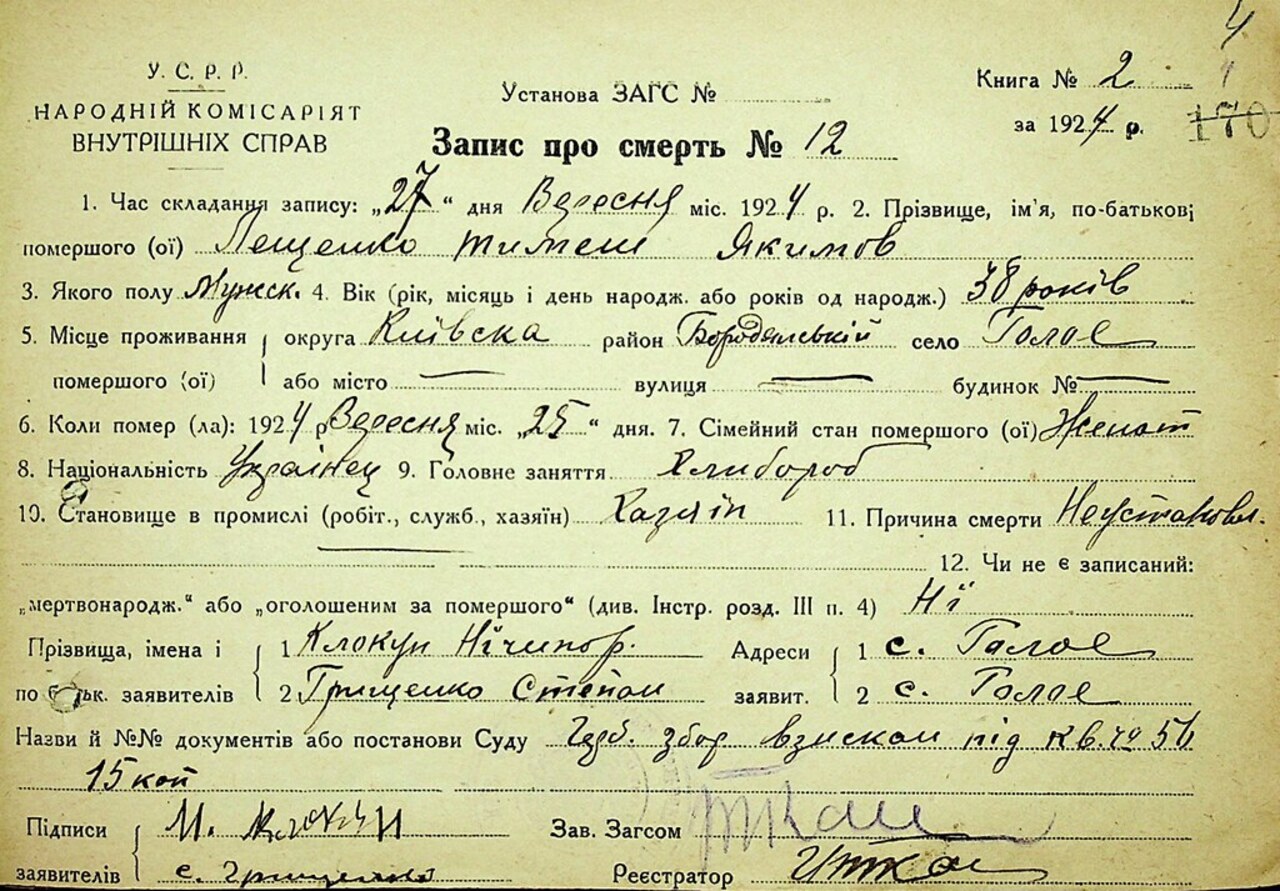 4
У. С. Р. Р.
НАРОДНІЙ КОМІСАРІЯТ
ВНУТРІШНІХ СПРАВ
Установа ЗАГС №
Книга № 2
за 1924 р.
170
Запис про смерть № 12
1. Час складання запису: „27“ дня Вересня міс. 1924 р. 2. Прізвище, ім'я, по-батькові
помершого (ої) Лещенко Тимеш Якимов
3. Якого полу Мужск. 4. Вік (рік, місяць і день народж. або років од народж.) 38 років
5. Місце проживання округа Київска район Бородянський село Галое
помершого (ої) або місто — вулиця — будинок № —
6. Коли помер (ла): 1924 р Вересня міс. „25“ дня. 7. Сімейний стан помершого (ої) Женат
8. Національність Українец 9. Головне заняття Хлибороб
10. Становище в промислі (робіт., служб., хазяїн) Хазяін 11. Причина смерти Неустановл.
12. Чи не є записаний:
„мертвонародж.“ або „оголошеним за помершого“ (див. Інстр. розд. III п. 4) Ні
Прізвища, імена і 1 Клокун Нічипор. Адреси 1 с. Галое
по батьк. заявителів 2 Грищенко Степан заявит. 2 с. Галое
Назви й №№ документів або постанови Суду збор взискан під кв. № 56
15 коп
Підписи М. Клокун Зав. Загсом
заявителів с. Грищенко Реєстратор